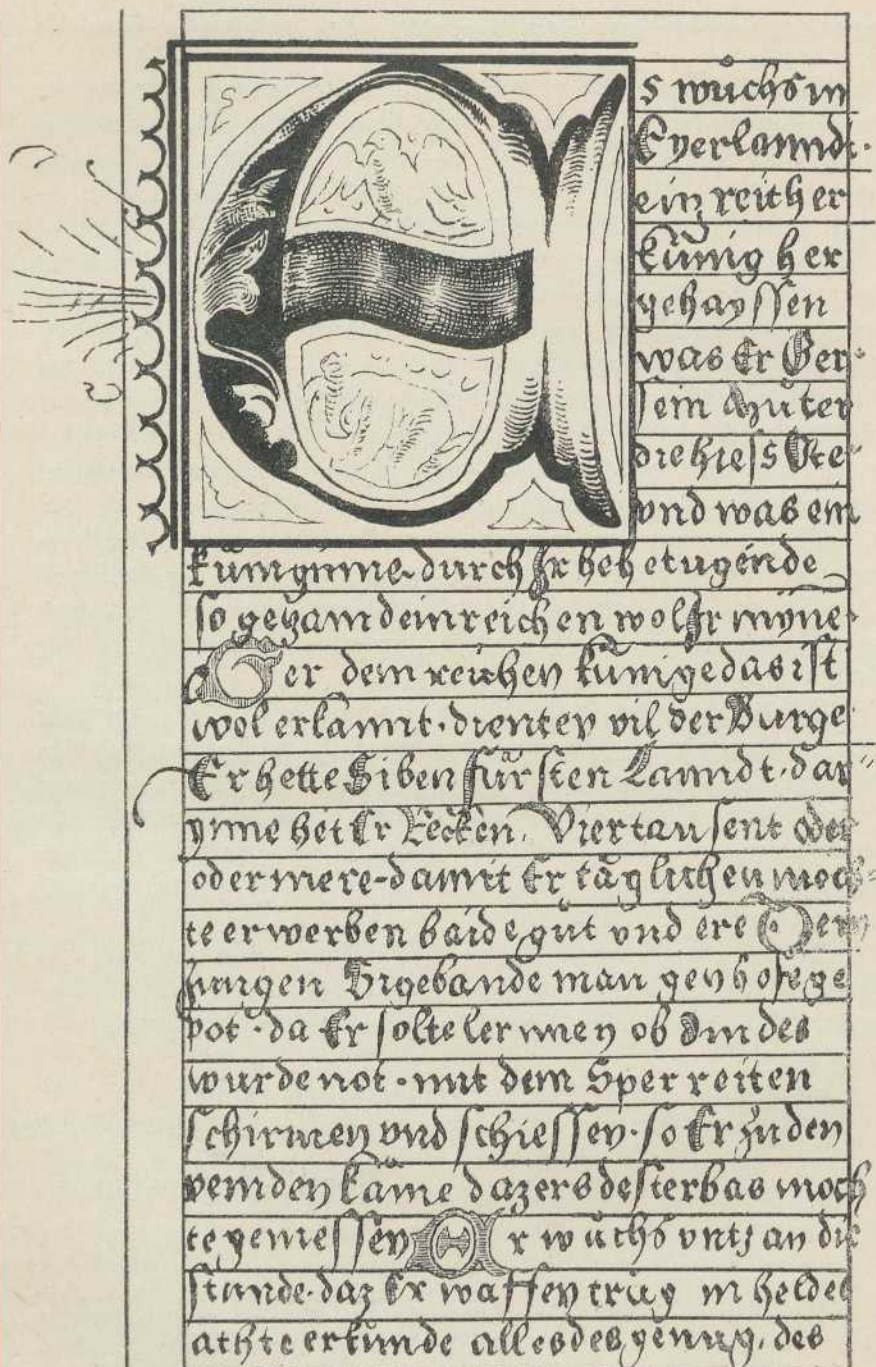 Es wůchs in
Eyerlannde·
ein reicher
kŭnig her
gehayssen
was Er Ger·
sein Muter
die hiess Ute·
vnd was ein
kŭniginne· durch Ir hohe tugende
so gezam dem reichen wol Ir mynne·
Ger dem reichen kŭnige das ist
wol erkannt· dienten vil der Burge
Er hette Siben fŭrsten Lanndt· dar″
ynne het Er Recken. Viertausent oder
oder mere-damit Er tăglichen moch⸗
te erwerben baide gŭt vnd ere Dem
jungen Sigebande man gen hofe ge
pot· da Er solte lernnen ob Im des
wurde not· mit dem Sper reiten
schirmen vnd schiessen· so Er zu den
veinden kăme daz ers dester bas moch
te geniessen Er wŭchs vntz an die
stunde· daz Er waffen trŭg in heldes
achte er kunde alles des genug. des